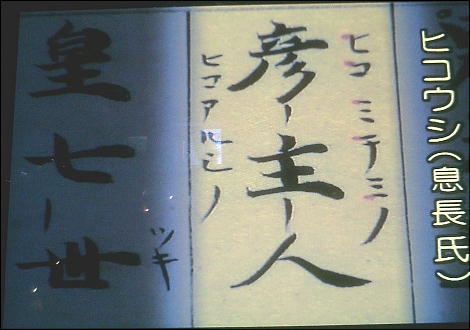 ヒコウシ(息長氏)
ヒコ ミチミノ
彦-主-人
ヒコアルシノ
ツキ
皇七-世